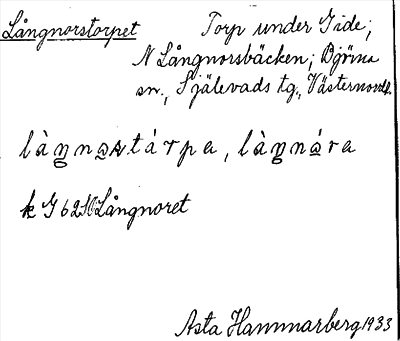 Långnorstorpet Torp under Gide;
N Långnorsbäcken; Björna
sn., Själevads tg., Västernorrl.
làŋnastárpa, làŋnára
k G 6210 Långnoret
Asta Hammarberg 1933